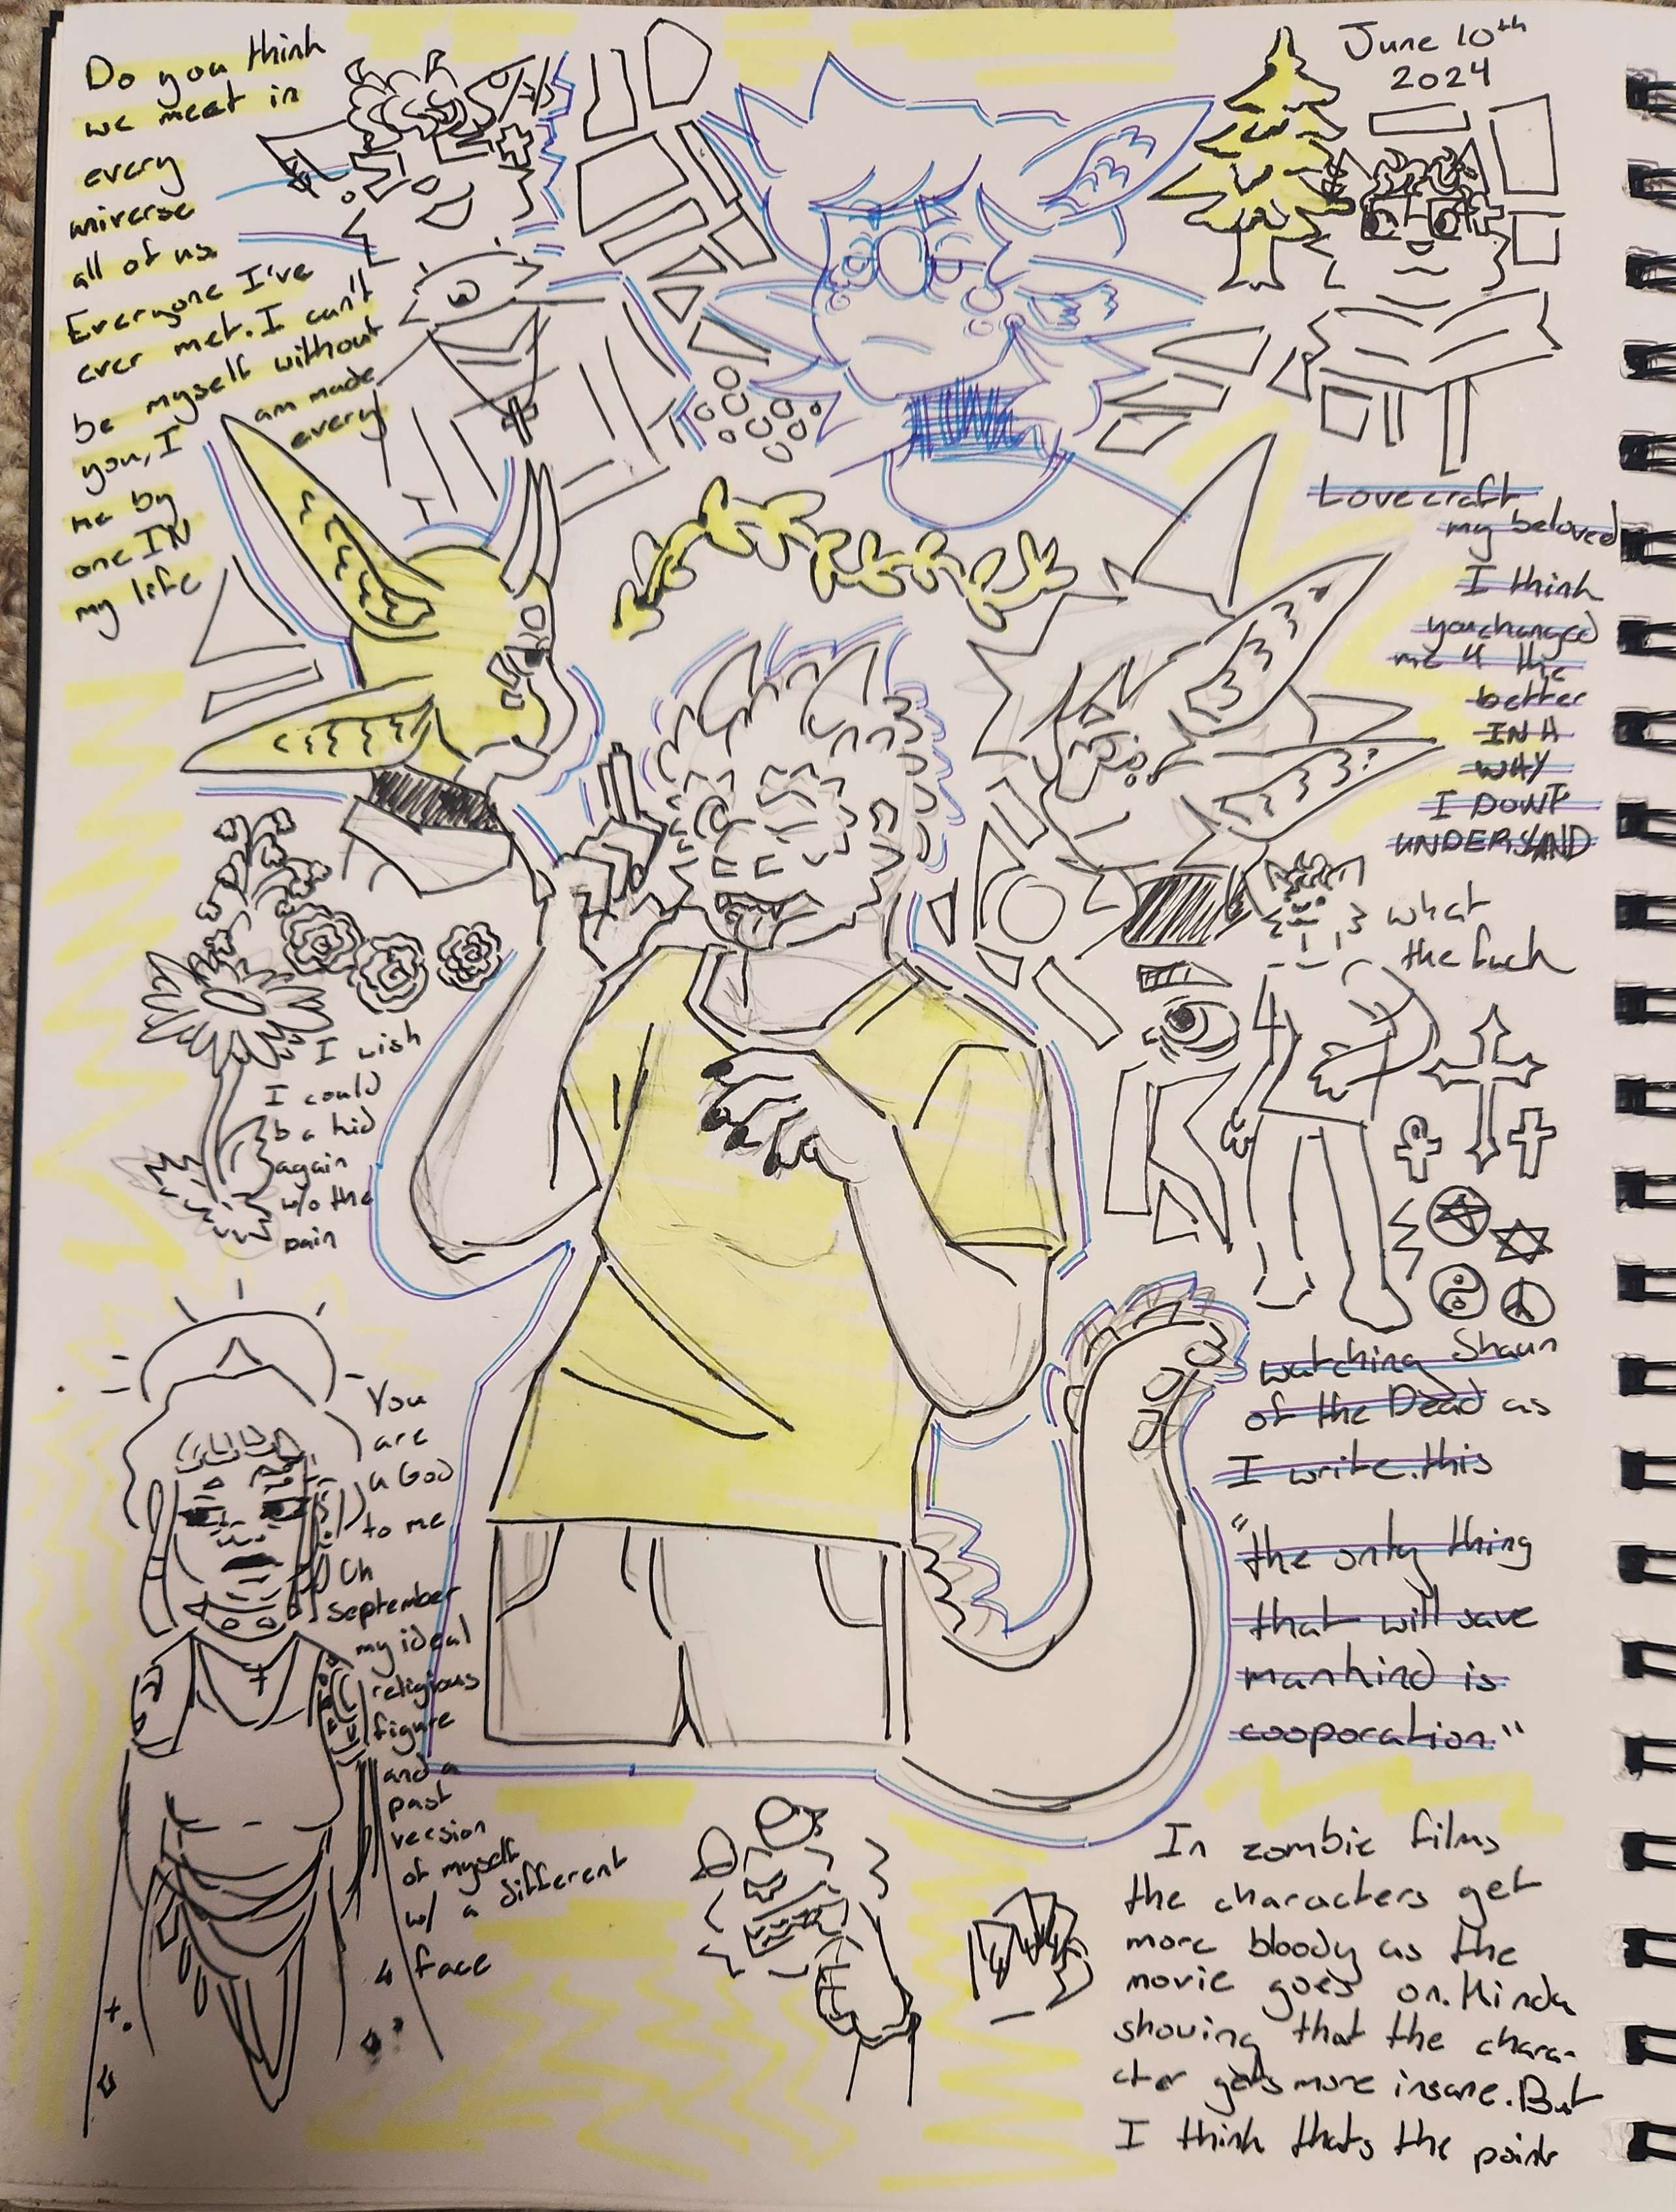 Do you think
we meet in
every
universe
all of us
Everyone I've
ever met. I can't
be myself without
you, I am made
me by every
one IN
my life
June 10th
2024
Lovecraft
my beloved
I think
you changed
me 4 the
better
IN A
WAY
I DONT
UNDERSAND
what
the fuck
I wish
I could
b a kid
again
w/o the
pain
You
are
a God
to me
Oh
september
my ideal
religious
figure
and a
past
version
of myself
w/ a different
face
watching Shaun
of the Dead as
I write this
"the only thing
that will save
mankind is
cooporation."
In zombie films
the characters get
more bloody as the
movie goes on. Kinda
showing that the chara-
cter gets more insane. But
I think thats the point